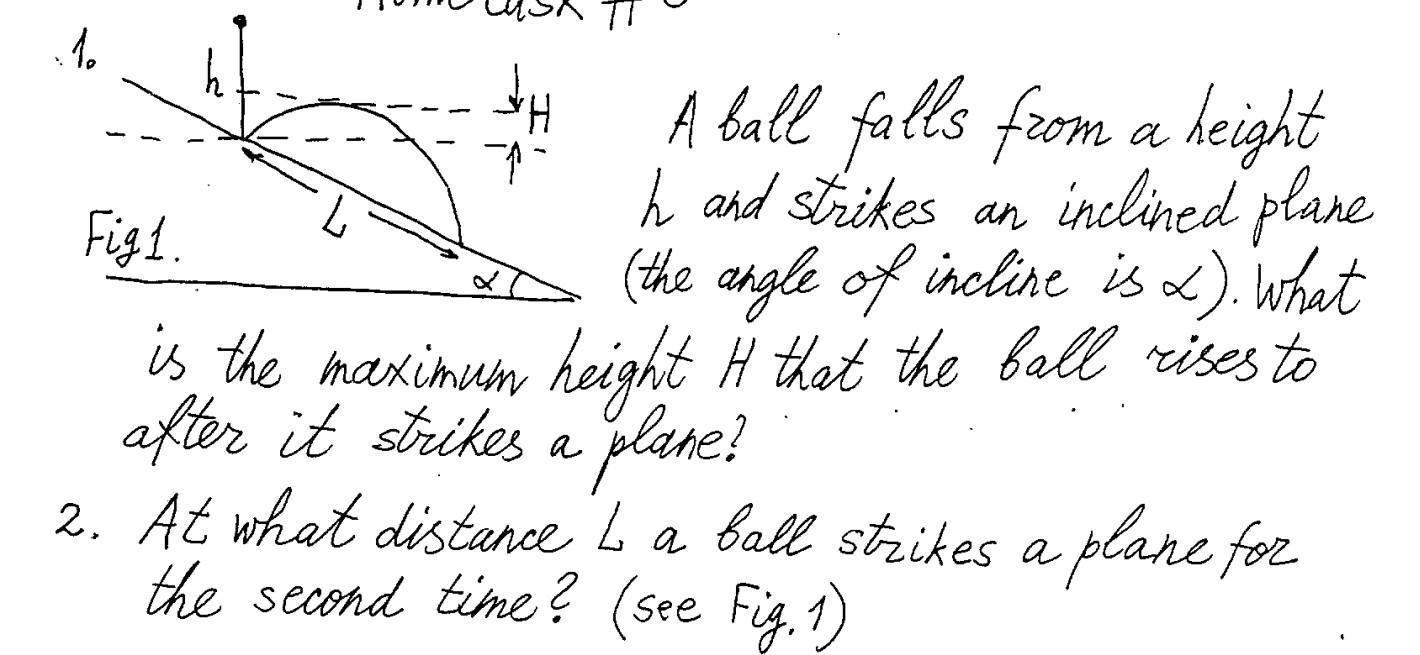 Home task #
1.
h
H
L
Fig 1.
α
A ball falls from a height
h and strikes an inclined plane
(the angle of incline is α). What
is the maximum height H that the ball rises to
after it strikes a plane?
2. At what distance L a ball strikes a plane for
the second time? (see Fig. 1)